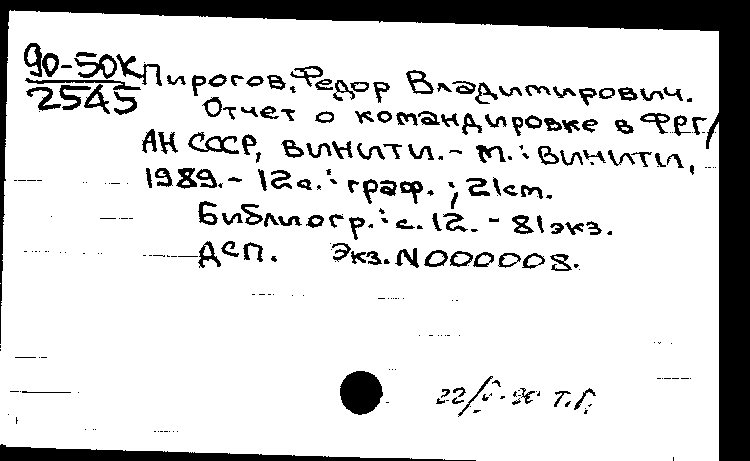 90-50К
2545
Пирогов, Федор Владимирович.
Отчет о командировке в ФРГ/
АН СССР, ВИНИТИ. - М.: ВИНИТИ,
1989. - 12с.: граф.; 21см.
Библиогр.: с. 12. - 81экз.
ДСП. Экз. N000008.
22/V-90 Т.Г.